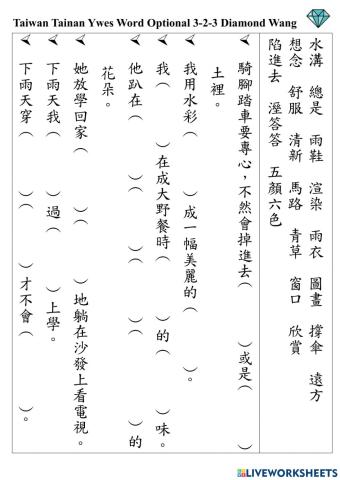 Taiwan Tainan Ywes Word Optional 3-2-3 Diamond Wang
水溝 總是 雨鞋 渲染 雨衣 圖畫 撐傘 遠方
想念 舒服 清新 馬路 青草 窗口 欣賞
陷進去 溼答答 五顏六色
➢ 騎腳踏車要專心,不然會掉進去( )或是( )
土裡。
➢ 我用水彩( )成一幅美麗的( )。
➢ 我( )在成大野餐時( )的( )味。
➢ 他趴在( )( )( )的
花朵。
➢ 她放學回家( )( )地躺在沙發上看電視。
➢ 下雨天我( )過( )上學。
➢ 下雨天穿( )( )才不會( )。
LIVEWORKSHEETS